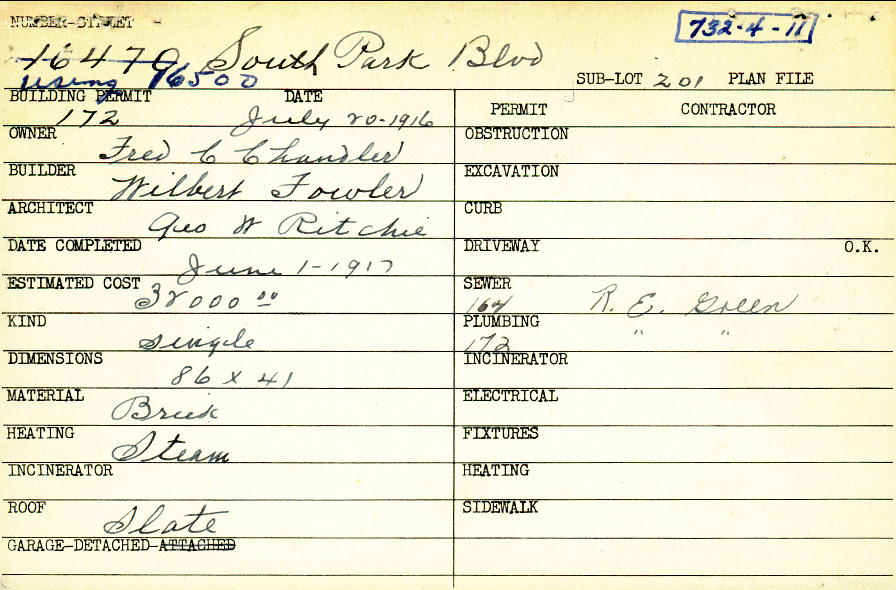 NUMBER-STREET
732-4-11
16479 South Park Blvd
using 16500
SUB-LOT 201 PLAN FILE
BUILDING PERMIT DATE
172 July 20-1916
PERMIT CONTRACTOR
OWNER Fred C Chandler
OBSTRUCTION
BUILDER Wilbert Fowler
EXCAVATION
ARCHITECT Geo W Ritchie
CURB
DATE COMPLETED June 1-1917
DRIVEWAY O.K.
ESTIMATED COST 32000 00
SEWER
164 R. E. Green
KIND single
PLUMBING
172 " "
DIMENSIONS 86 x 41
INCINERATOR
MATERIAL Brick
ELECTRICAL
HEATING Steam
FIXTURES
INCINERATOR
HEATING
ROOF Slate
SIDEWALK
GARAGE-DETACHED-ATTACHED